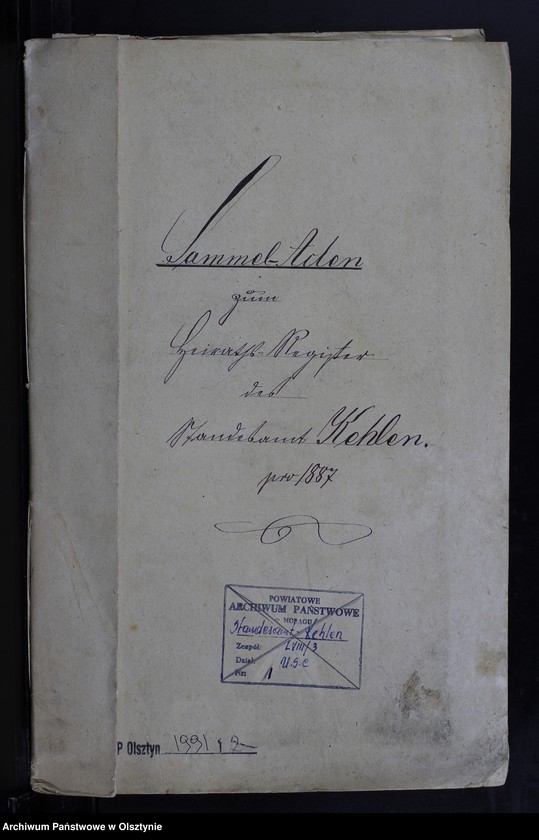 Sammel-Acten
zum
Heiraths-Register
des
Standesamt Kehlen.
pro 1887
POWIATOWE
ARCHIWUM PAŃSTWOWE
W MORĄGU
Standesamt Kehlen
Zespół: LVIII/3
Dział: U.S.C
Nr: 1
P Olsztyn 1991 / 2
Archiwum Państwowe w Olsztynie